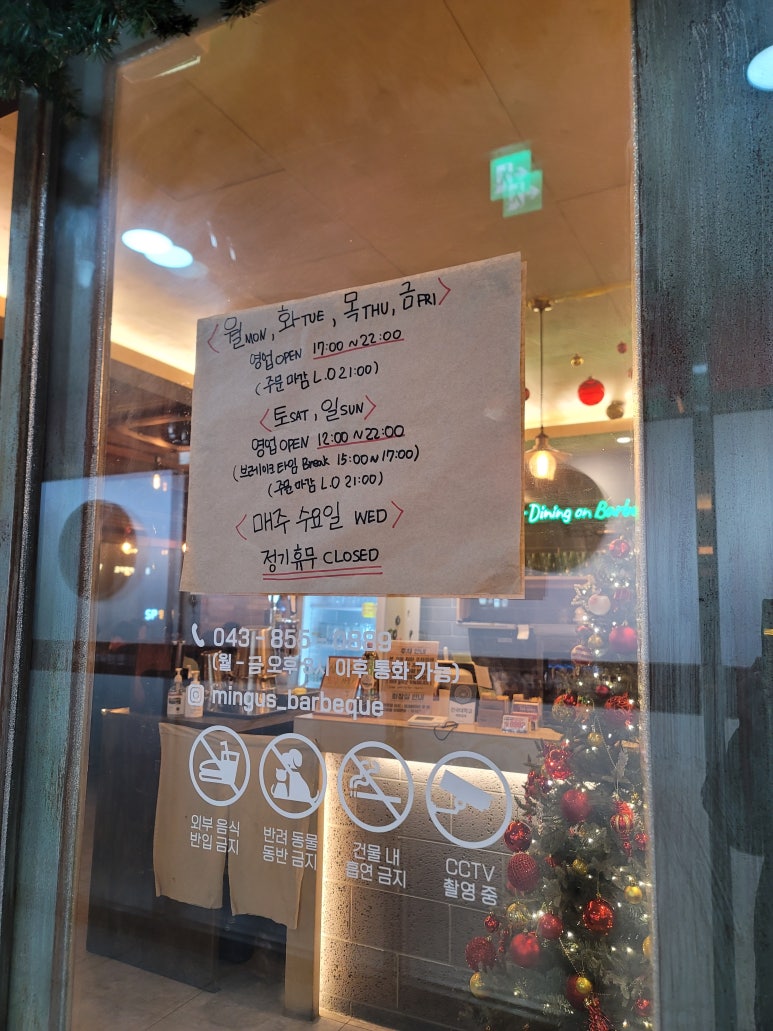 <월MON, 화TUE, 목THU, 금FRI>
영업OPEN 17:00~22:00
(주문마감 L.O 21:00)
<토SAT, 일SUN>
영업OPEN 12:00~22:00
(브레이크타임 Break 15:00~17:00)
(주문마감 L.O 21:00)
<매주 수요일 WED>
정기휴무 CLOSED
Dining on
043)- 855
(월 - 금 오후 이후 통화 가능)
mingus_barbeque
외부 음식
반입 금지
반려 동물
동반 금지
건물 내
흡연 금지
CCTV
촬영 중